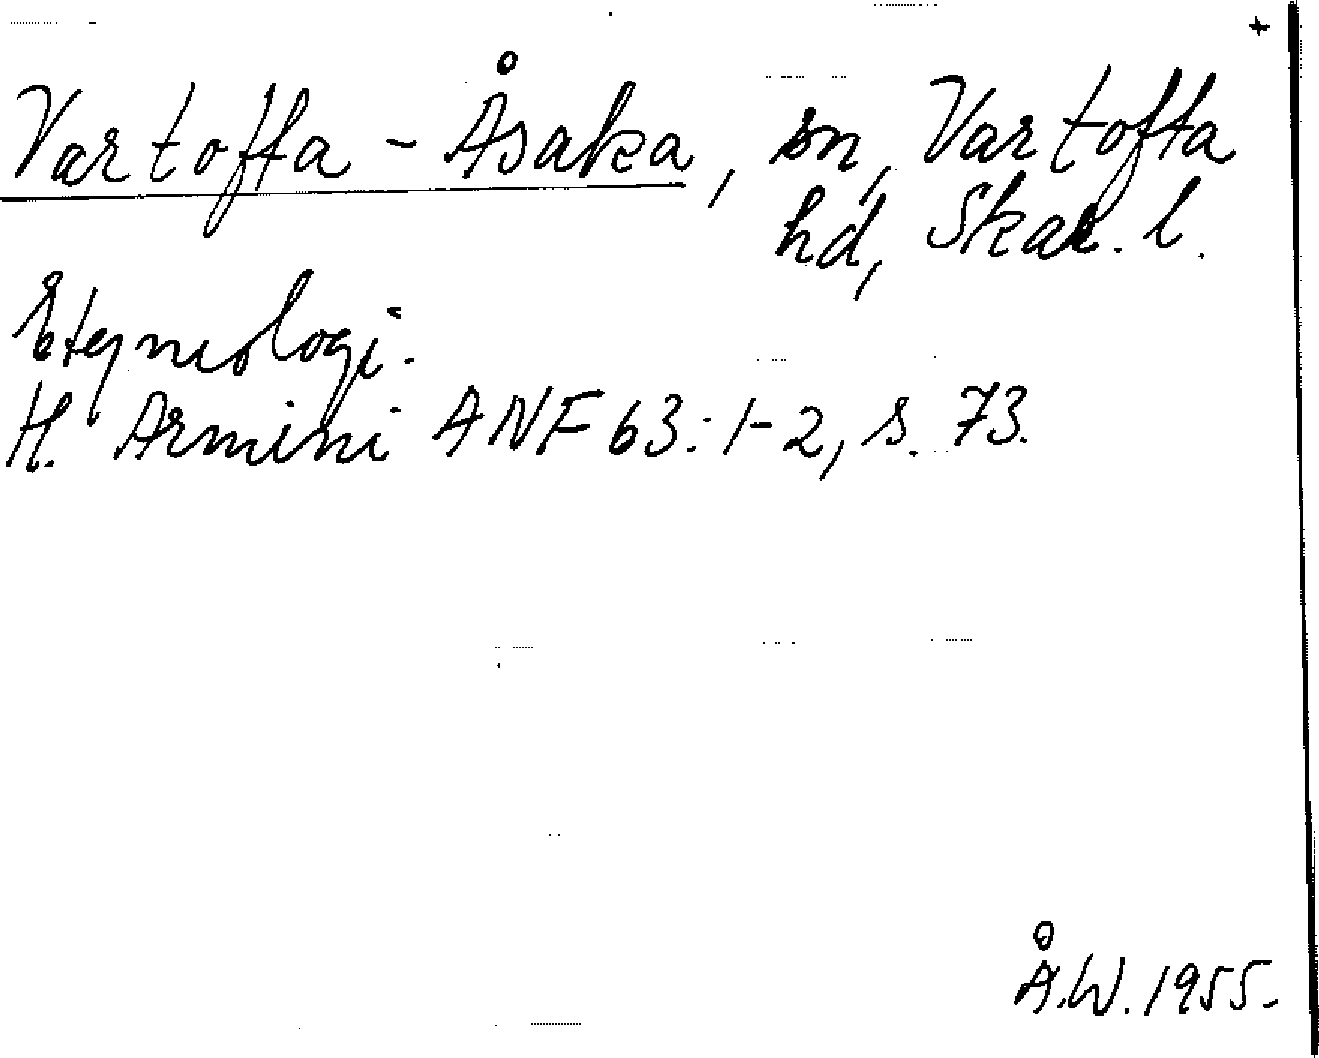 Vartofta-Åsaka, sn, Vartofta
hd, Skar. l.
Etymologi.
H. Armini ANF 63:1-2, s. 73.
Å.W. 1955.